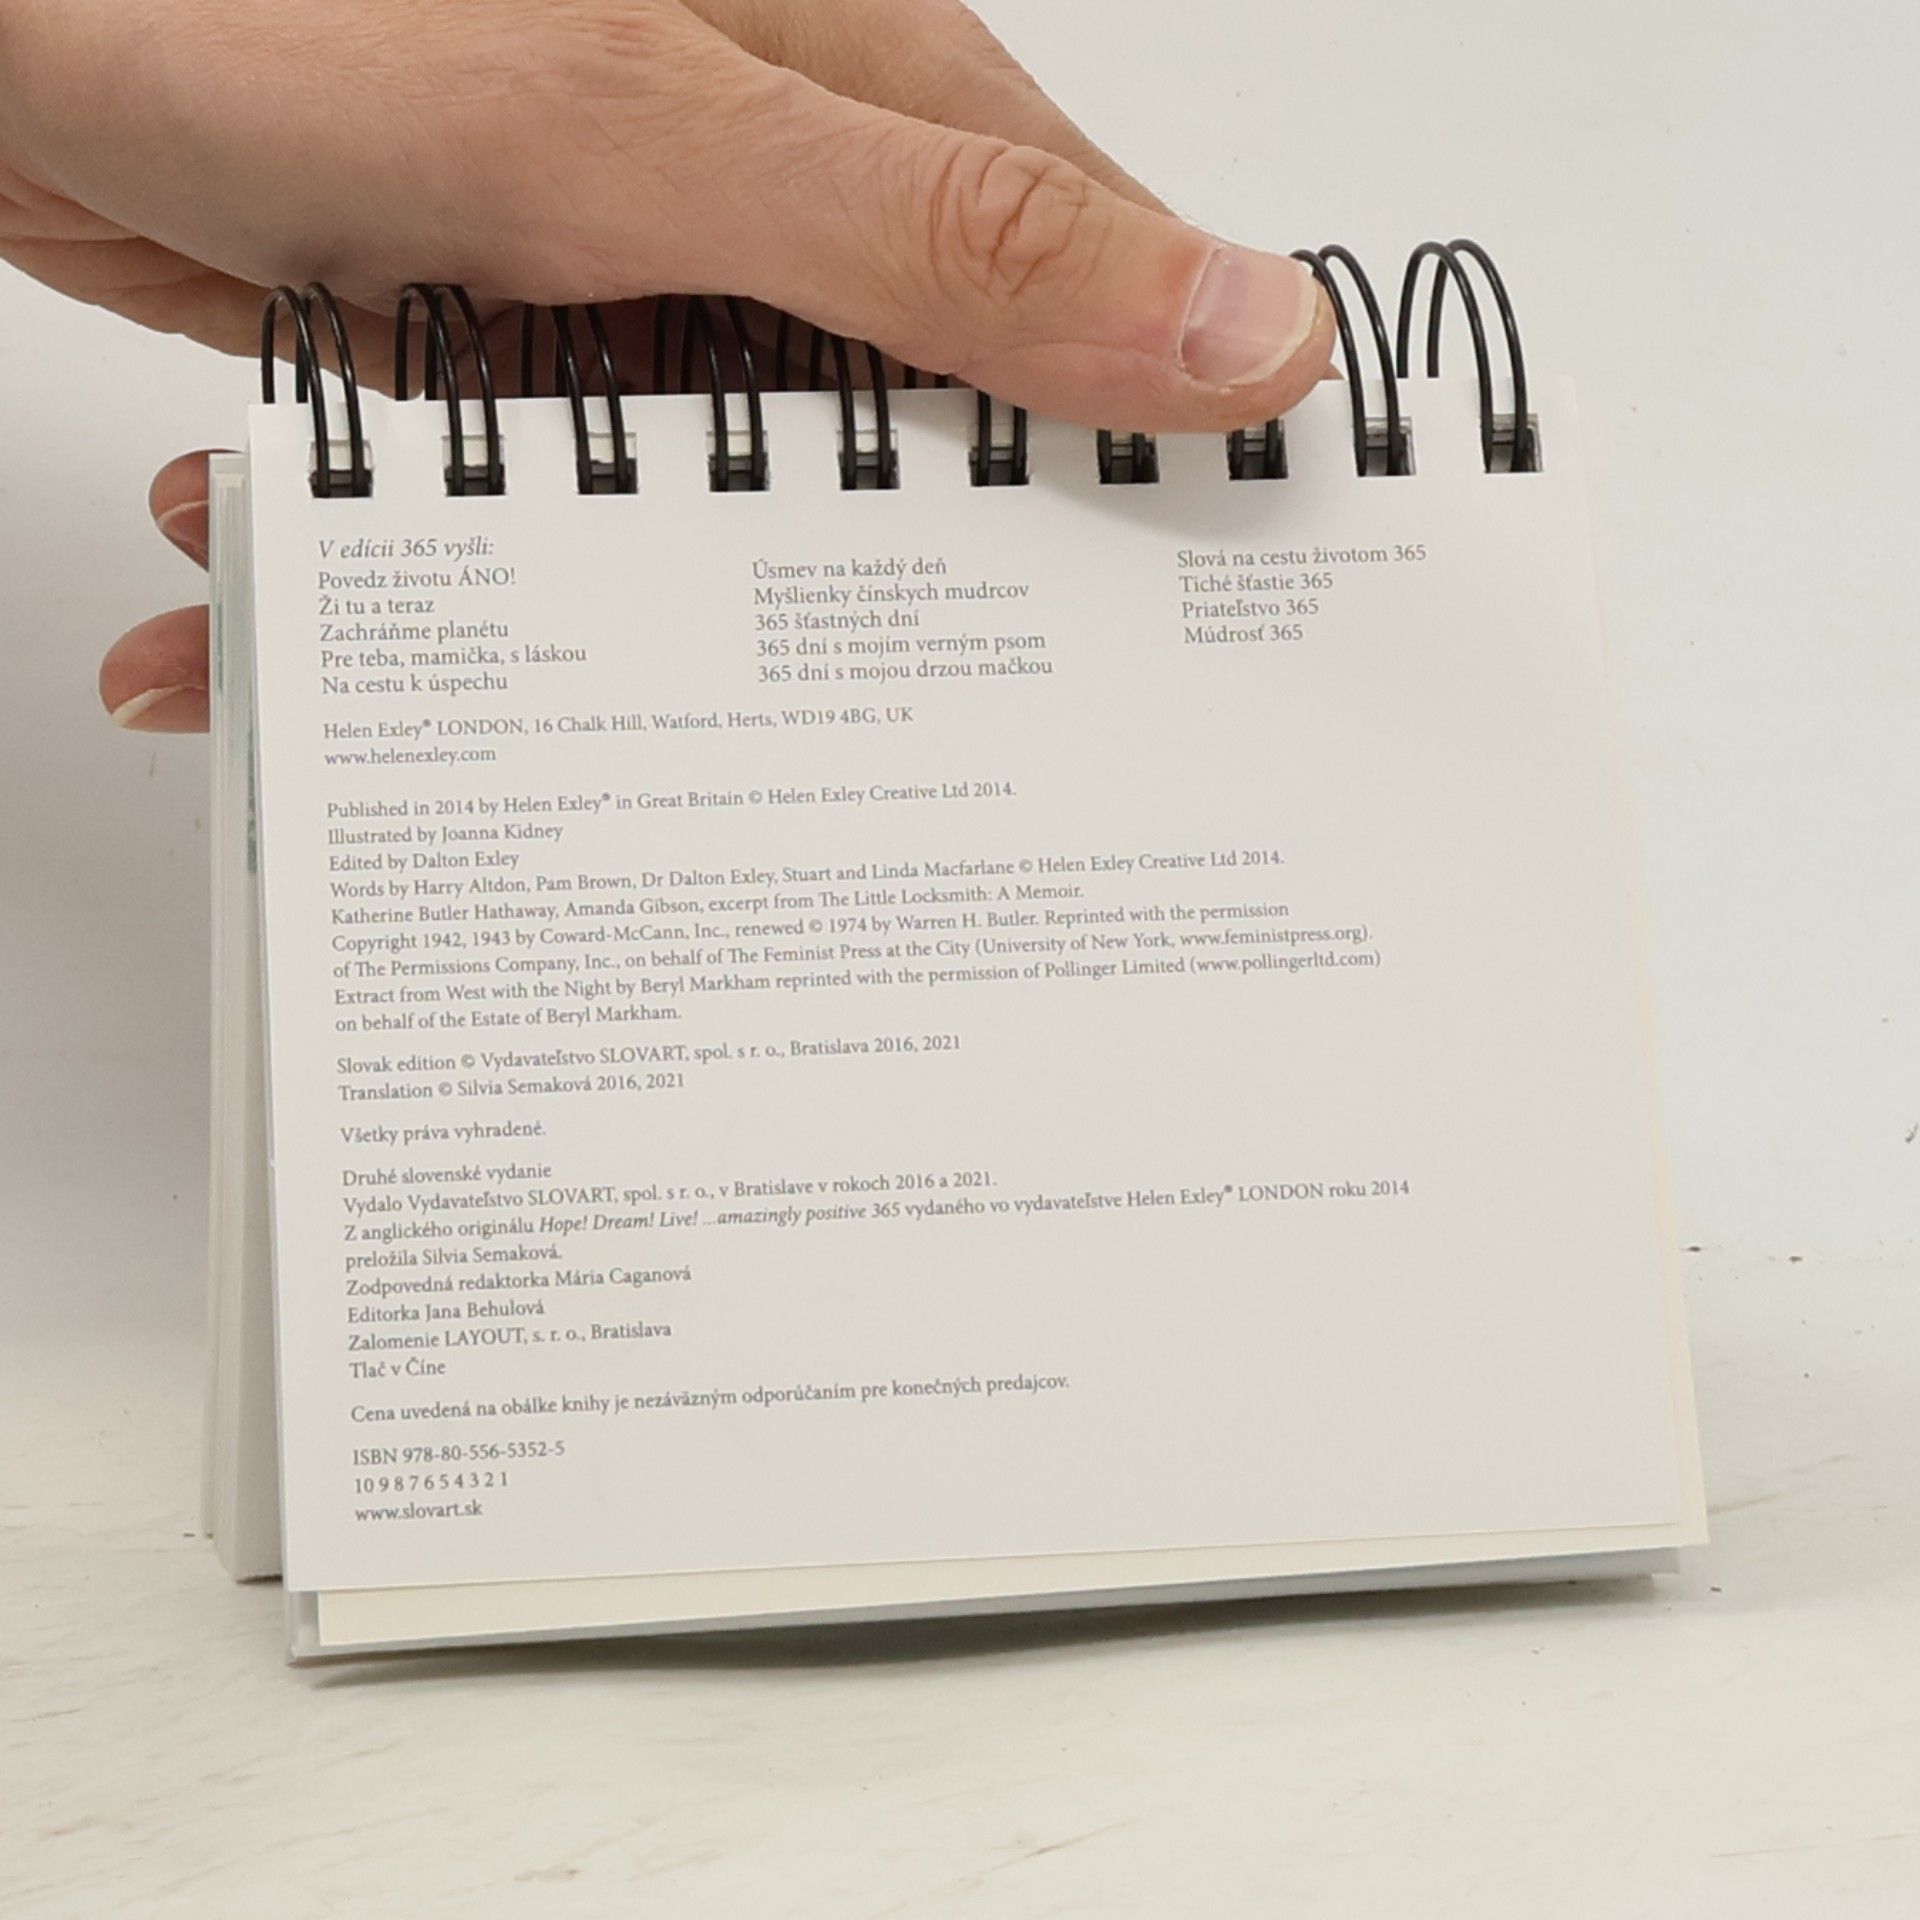 V edícii 365 vyšli:
Povedz životu ÁNO!
Ži tu a teraz
Zachráňme planétu
Pre teba, mamička, s láskou
Na cestu k úspechu
Úsmev na každý deň
Myšlienky čínskych mudrcov
365 šťastných dní
365 dní s mojím verným psom
365 dní s mojou drzou mačkou
Slová na cestu životom 365
Tiché šťastie 365
Priateľstvo 365
Múdrosť 365
Helen Exley® LONDON, 16 Chalk Hill, Watford, Herts, WD19 4BG, UK
www.helenexley.com
Published in 2014 by Helen Exley® in Great Britain © Helen Exley Creative Ltd 2014.
Illustrated by Joanna Kidney
Edited by Dalton Exley
Words by Harry Altdon, Pam Brown, Dr Dalton Exley, Stuart and Linda Macfarlane © Helen Exley Creative Ltd 2014.
Katherine Butler Hathaway, Amanda Gibson, excerpt from The Little Locksmith: A Memoir.
Copyright 1942, 1943 by Coward-McCann, Inc., renewed © 1974 by Warren H. Butler. Reprinted with the permission
of The Permissions Company, Inc., on behalf of The Feminist Press at the City (University of New York, www.feministpress.org).
Extract from West with the Night by Beryl Markham reprinted with the permission of Pollinger Limited (www.pollingerltd.com)
on behalf of the Estate of Beryl Markham.
Slovak edition © Vydavateľstvo SLOVART, spol. s r. o., Bratislava 2016, 2021
Translation © Silvia Semaková 2016, 2021
Všetky práva vyhradené.
Druhé slovenské vydanie
Vydalo Vydavateľstvo SLOVART, spol. s r. o., v Bratislave v rokoch 2016 a 2021.
Z anglického originálu Hope! Dream! Live! ...amazingly positive 365 vydaného vo vydavateľstve Helen Exley® LONDON roku 2014
preložila Silvia Semaková.
Zodpovedná redaktorka Mária Caganová
Editorka Jana Behulová
Zalomenie LAYOUT, s. r. o., Bratislava
Tlač v Číne
Cena uvedená na obálke knihy je nezáväzným odporúčaním pre konečných predajcov.
ISBN 978-80-556-5352-5
10 9 8 7 6 5 4 3 2 1
www.slovart.sk